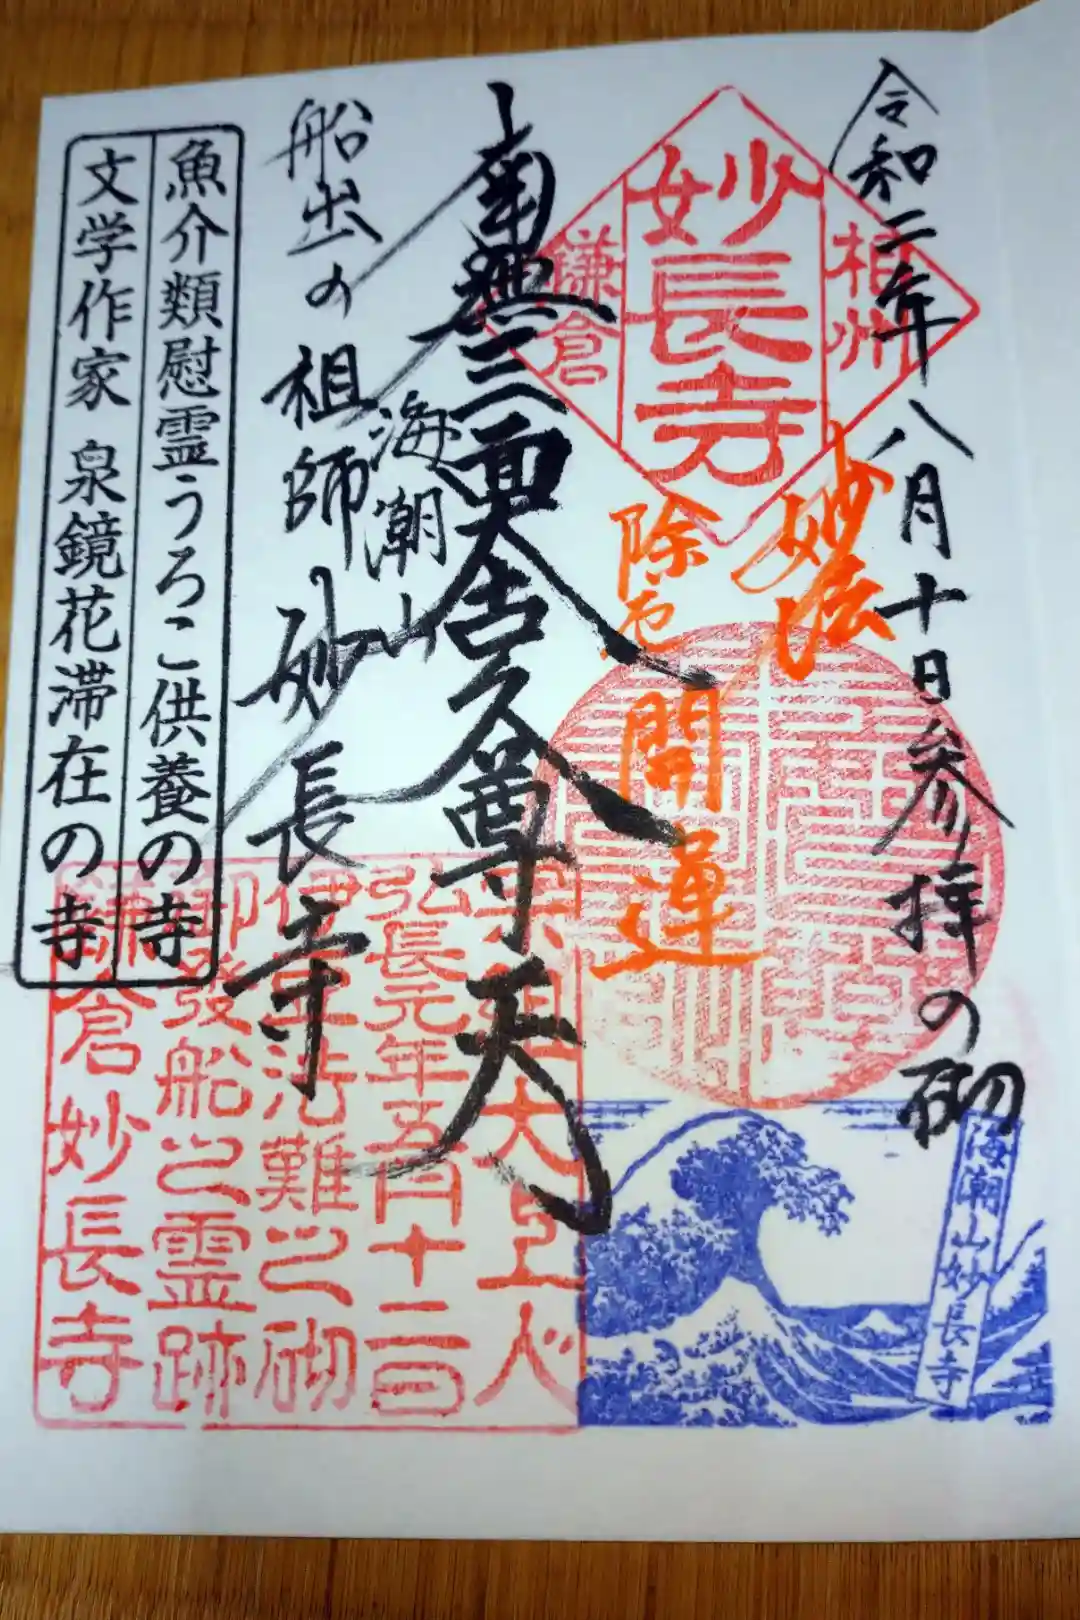 令和二年八月十日参拝の砌
相州
妙長寺
鎌倉
妙法
除厄
開運
南無三面大吉久尊天
海潮山
船出の祖師 妙長寺
魚介類慰霊うろこ供養の寺
文学作家 泉鏡花滞在の寺
宗祖大上人
弘長元年五月十二日
伊豆法難之砌
御発船之霊跡
鎌倉妙長寺
海潮山妙長寺